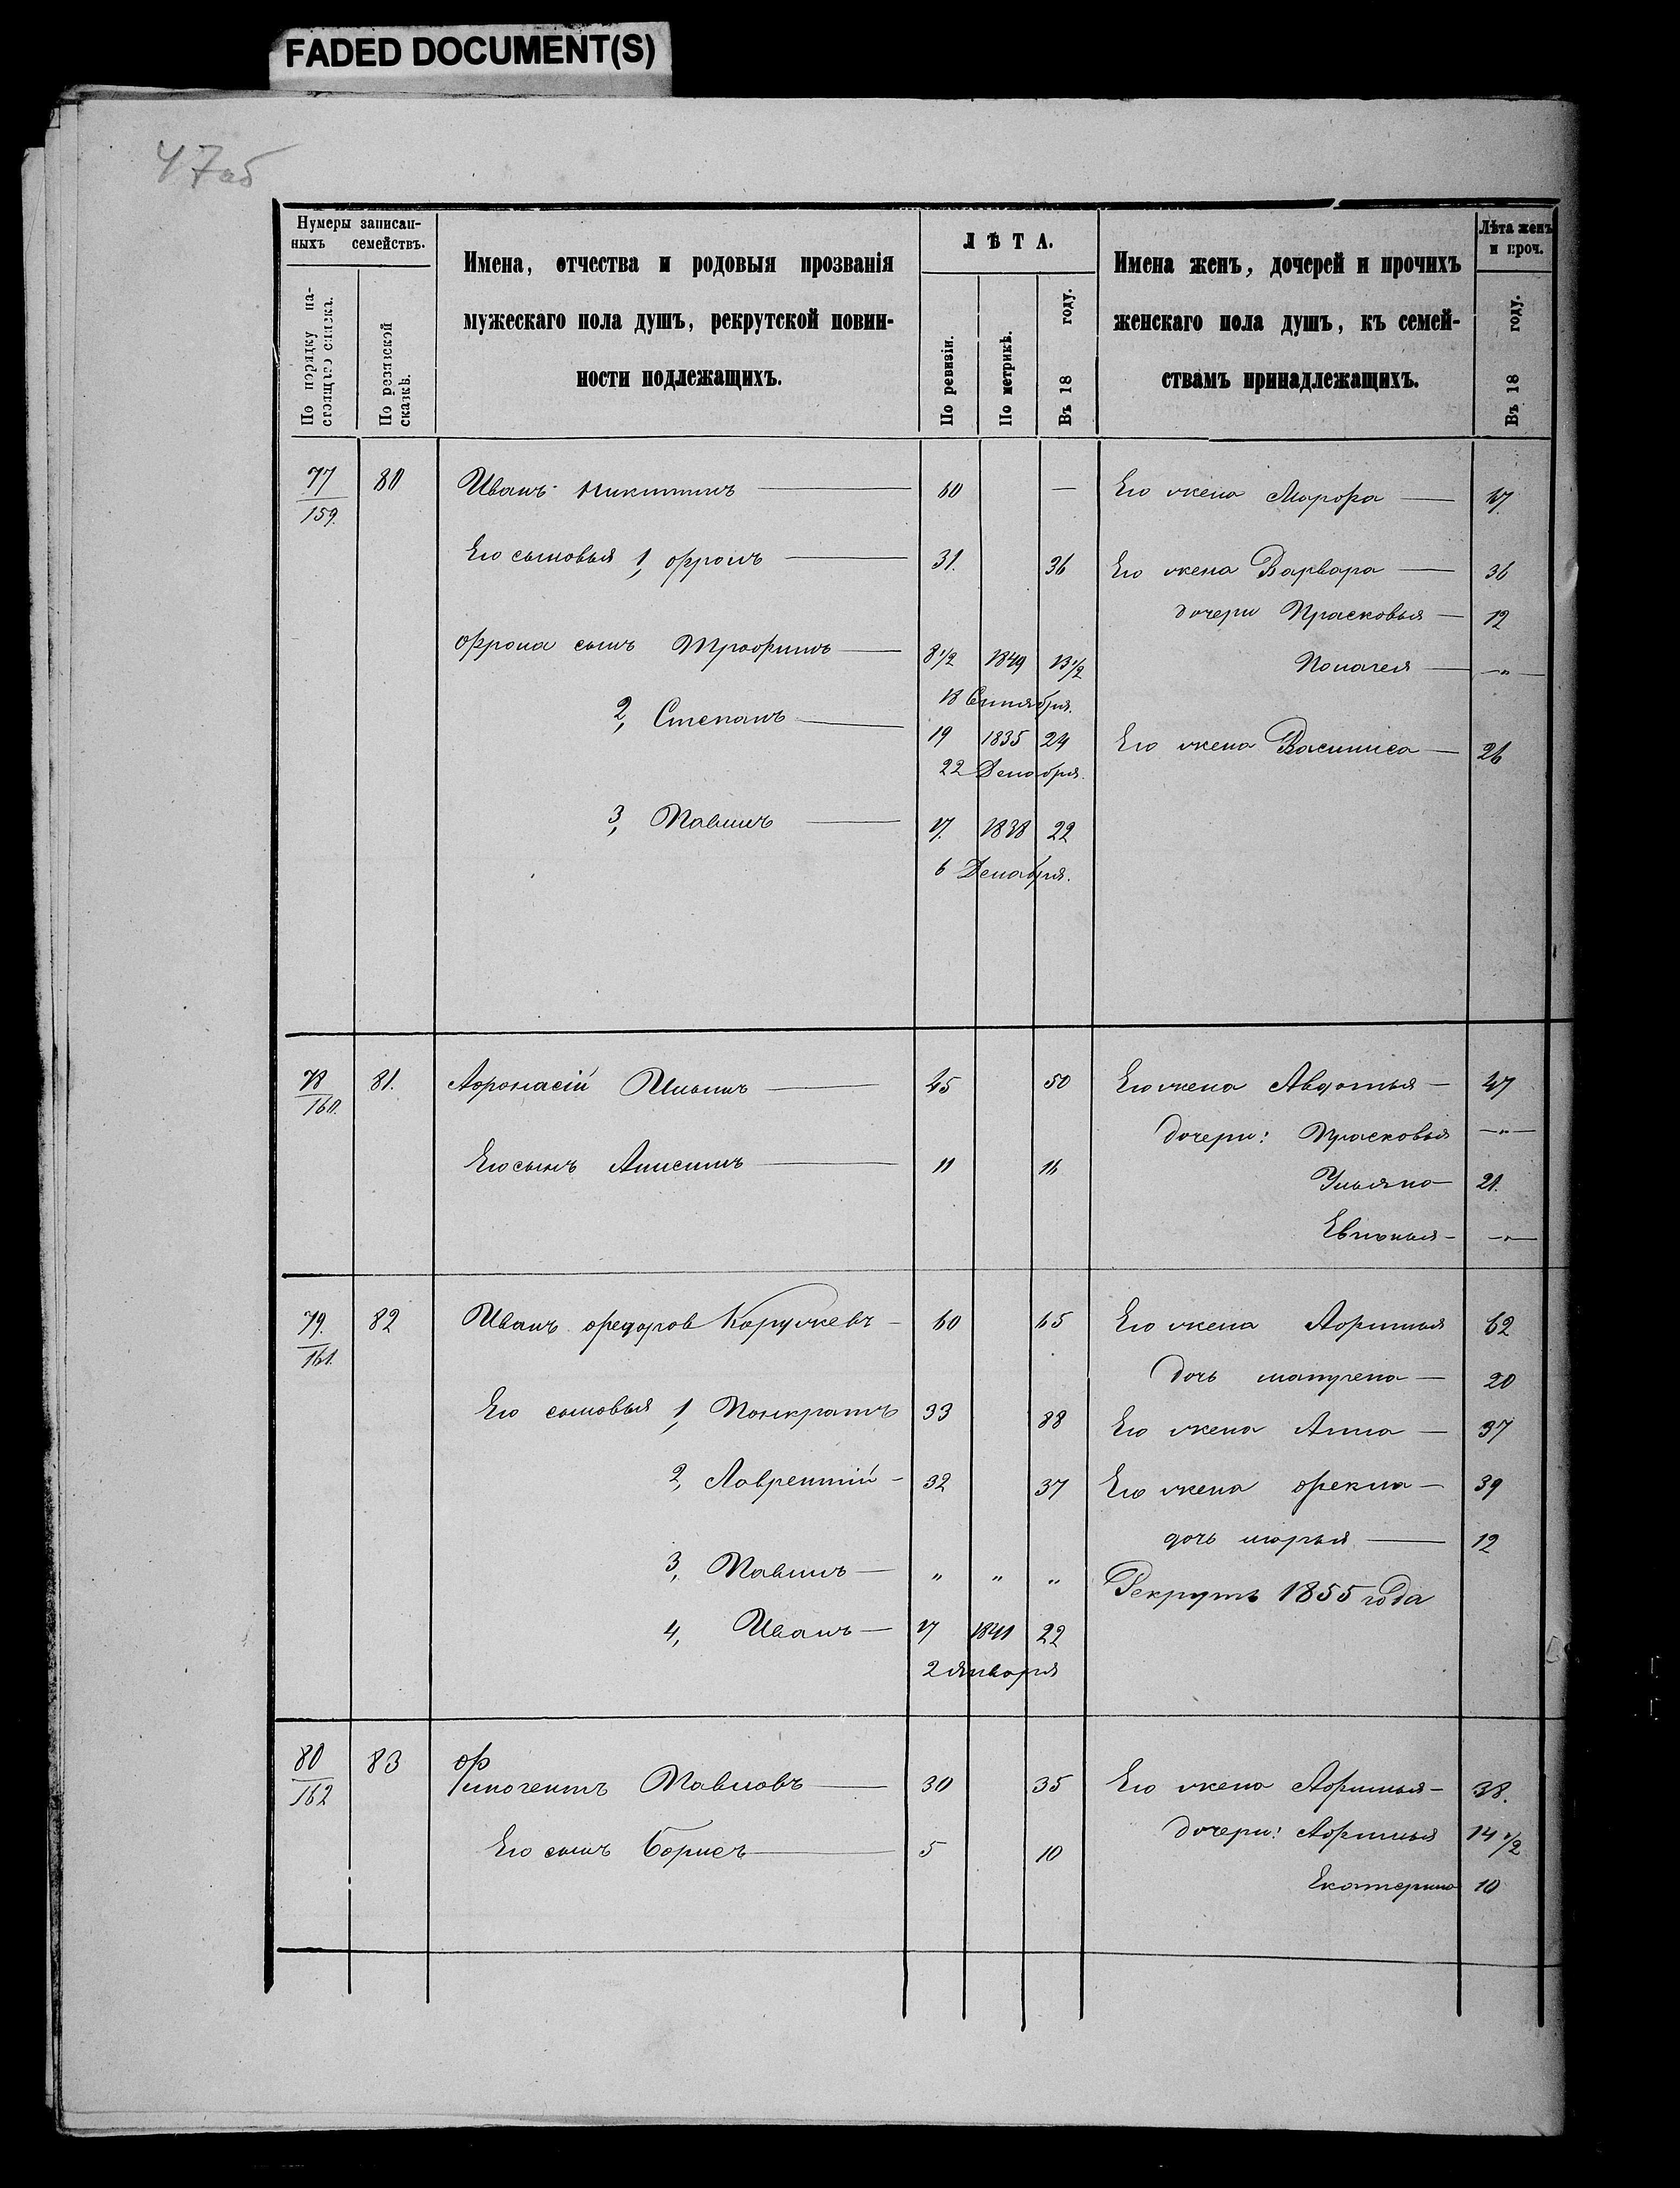 FADED DOCUMENT(S)
47об
Нумеры записан-
ныхъ семействъ.
По порядку на-
стоящаго списка.
По ревизской
сказкѣ.
Имена, отчества и родовыя прозванія
мужескаго пола душъ, рекрутской повин-
ности подлежащихъ.
ЛѢТА.
По ревизіи.
По метрикѣ.
Въ 18 году.
Имена женъ, дочерей и прочихъ
женскаго пола душъ, къ семей-
ствамъ принадлежащихъ.
Лѣта женъ
и проч.
Въ 18 году.
77/159. 80 Иванъ Никитинъ — 60 — Его жена Марфа —
Его сыновья 1, Фролъ — 31. 36 Его жена Варвара — 36
дочери Прасковья — 12
Фрола сынъ Трофимъ — 8 1/2 1849 13 1/2 Пелагея — „
18 Сентября.
2, Степанъ — 19 1835 24 Его жена Василиса — 26
22 Декабря.
3, Павелъ — 17. 1838 22
6 Декабря.
78/160. 81. Афонасій Ильинъ — 45 50 Его жена Авдотья — 47
дочери: Прасковья — „ —
Его сынъ Анисимъ — 11 16
Ульяна — 21.
Евгенья — „ —
79./161. 82 Иванъ Федоров — 60 65 Его жена Афимья 62
дочь матрена — 20
Его сыновья 1, Понкратъ 33 88 Его жена Анна — 37
2, Лаврентій — 32 37 Его жена Фекла — 39
дочь марья — 12
3, Павелъ — „ „ „ Рекрутъ 1855 года
4, Иванъ — 17 1841 22
2 января
80/162 83 Павловъ — 30 35 Его жена Афимья — 38.
дочери: Афимья 14 1/2
Его сынъ Борисъ — 5 10
Екатерина 10